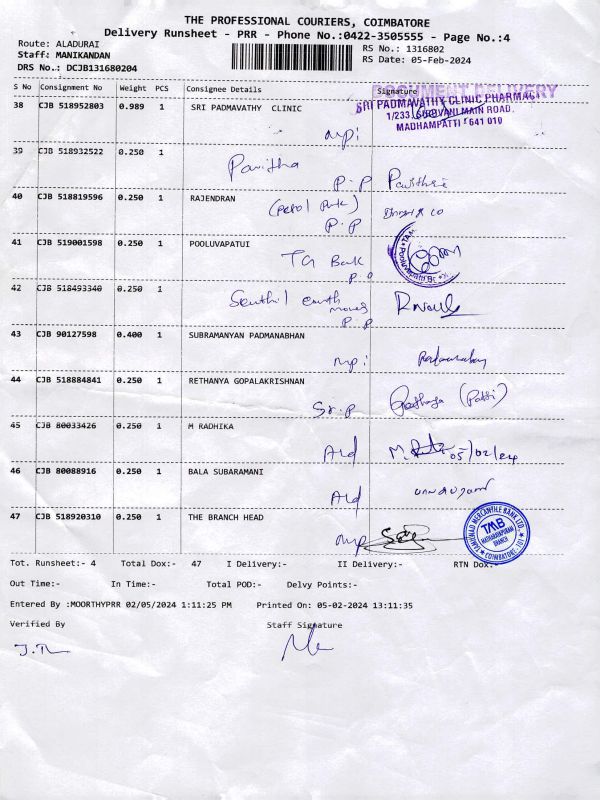 THE PROFESSIONAL COURIERS, COIMBATORE
Delivery Runsheet - PRR - Phone No.:0422-3505555 - Page No.:4
Route: ALADURAI
RS No.: 1316802
Staff: MANIKANDAN
RS Date: 05-Feb-2024
DRS No.: DCJB131680204
S No Consignment No Weight PCS Consignee Details Signature
DOCUMENT DELIVERY
38 CJB 518952803 0.989 1 SRI PADMAVATHY CLINIC
SRI PADMAVATHY CLINIC PHARMACY
1/233, SIRUVANI MAIN ROAD,
MADHAMPATTI - 641 010
mpi
39 CJB 518932522 0.250 1
Pavitha
P.P
40 CJB 518819596 0.250 1 RAJENDRAN
P.P
41 CJB 519001598 0.250 1 POOLUVAPATUI
Bank
42 CJB 518493340 0.250 1
Senthil earth
movers
P.P
43 CJB 90127598 0.400 1 SUBRAMANYAN PADMANABHAN
mpi
44 CJB 518884841 0.250 1 RETHANYA GOPALAKRISHNAN
Sr.P
45 CJB 80033426 0.250 1 M RADHIKA
Ald 05/02/24
46 CJB 80088916 0.250 1 BALA SUBARAMANI
Ald
47 CJB 518920310 0.250 1 THE BRANCH HEAD
mp
TAMILNAD MERCANTILE BANK LTD.
TMB
BRANCH
COIMBATORE
Tot. Runsheet:- 4 Total Dox:- 47 I Delivery:- II Delivery:- RTN Dox:-
Out Time:- In Time:- Total POD:- Delvy Points:-
Entered By :MOORTHYPRR 02/05/2024 1:11:25 PM Printed On: 05-02-2024 13:11:35
Verified By Staff Signature